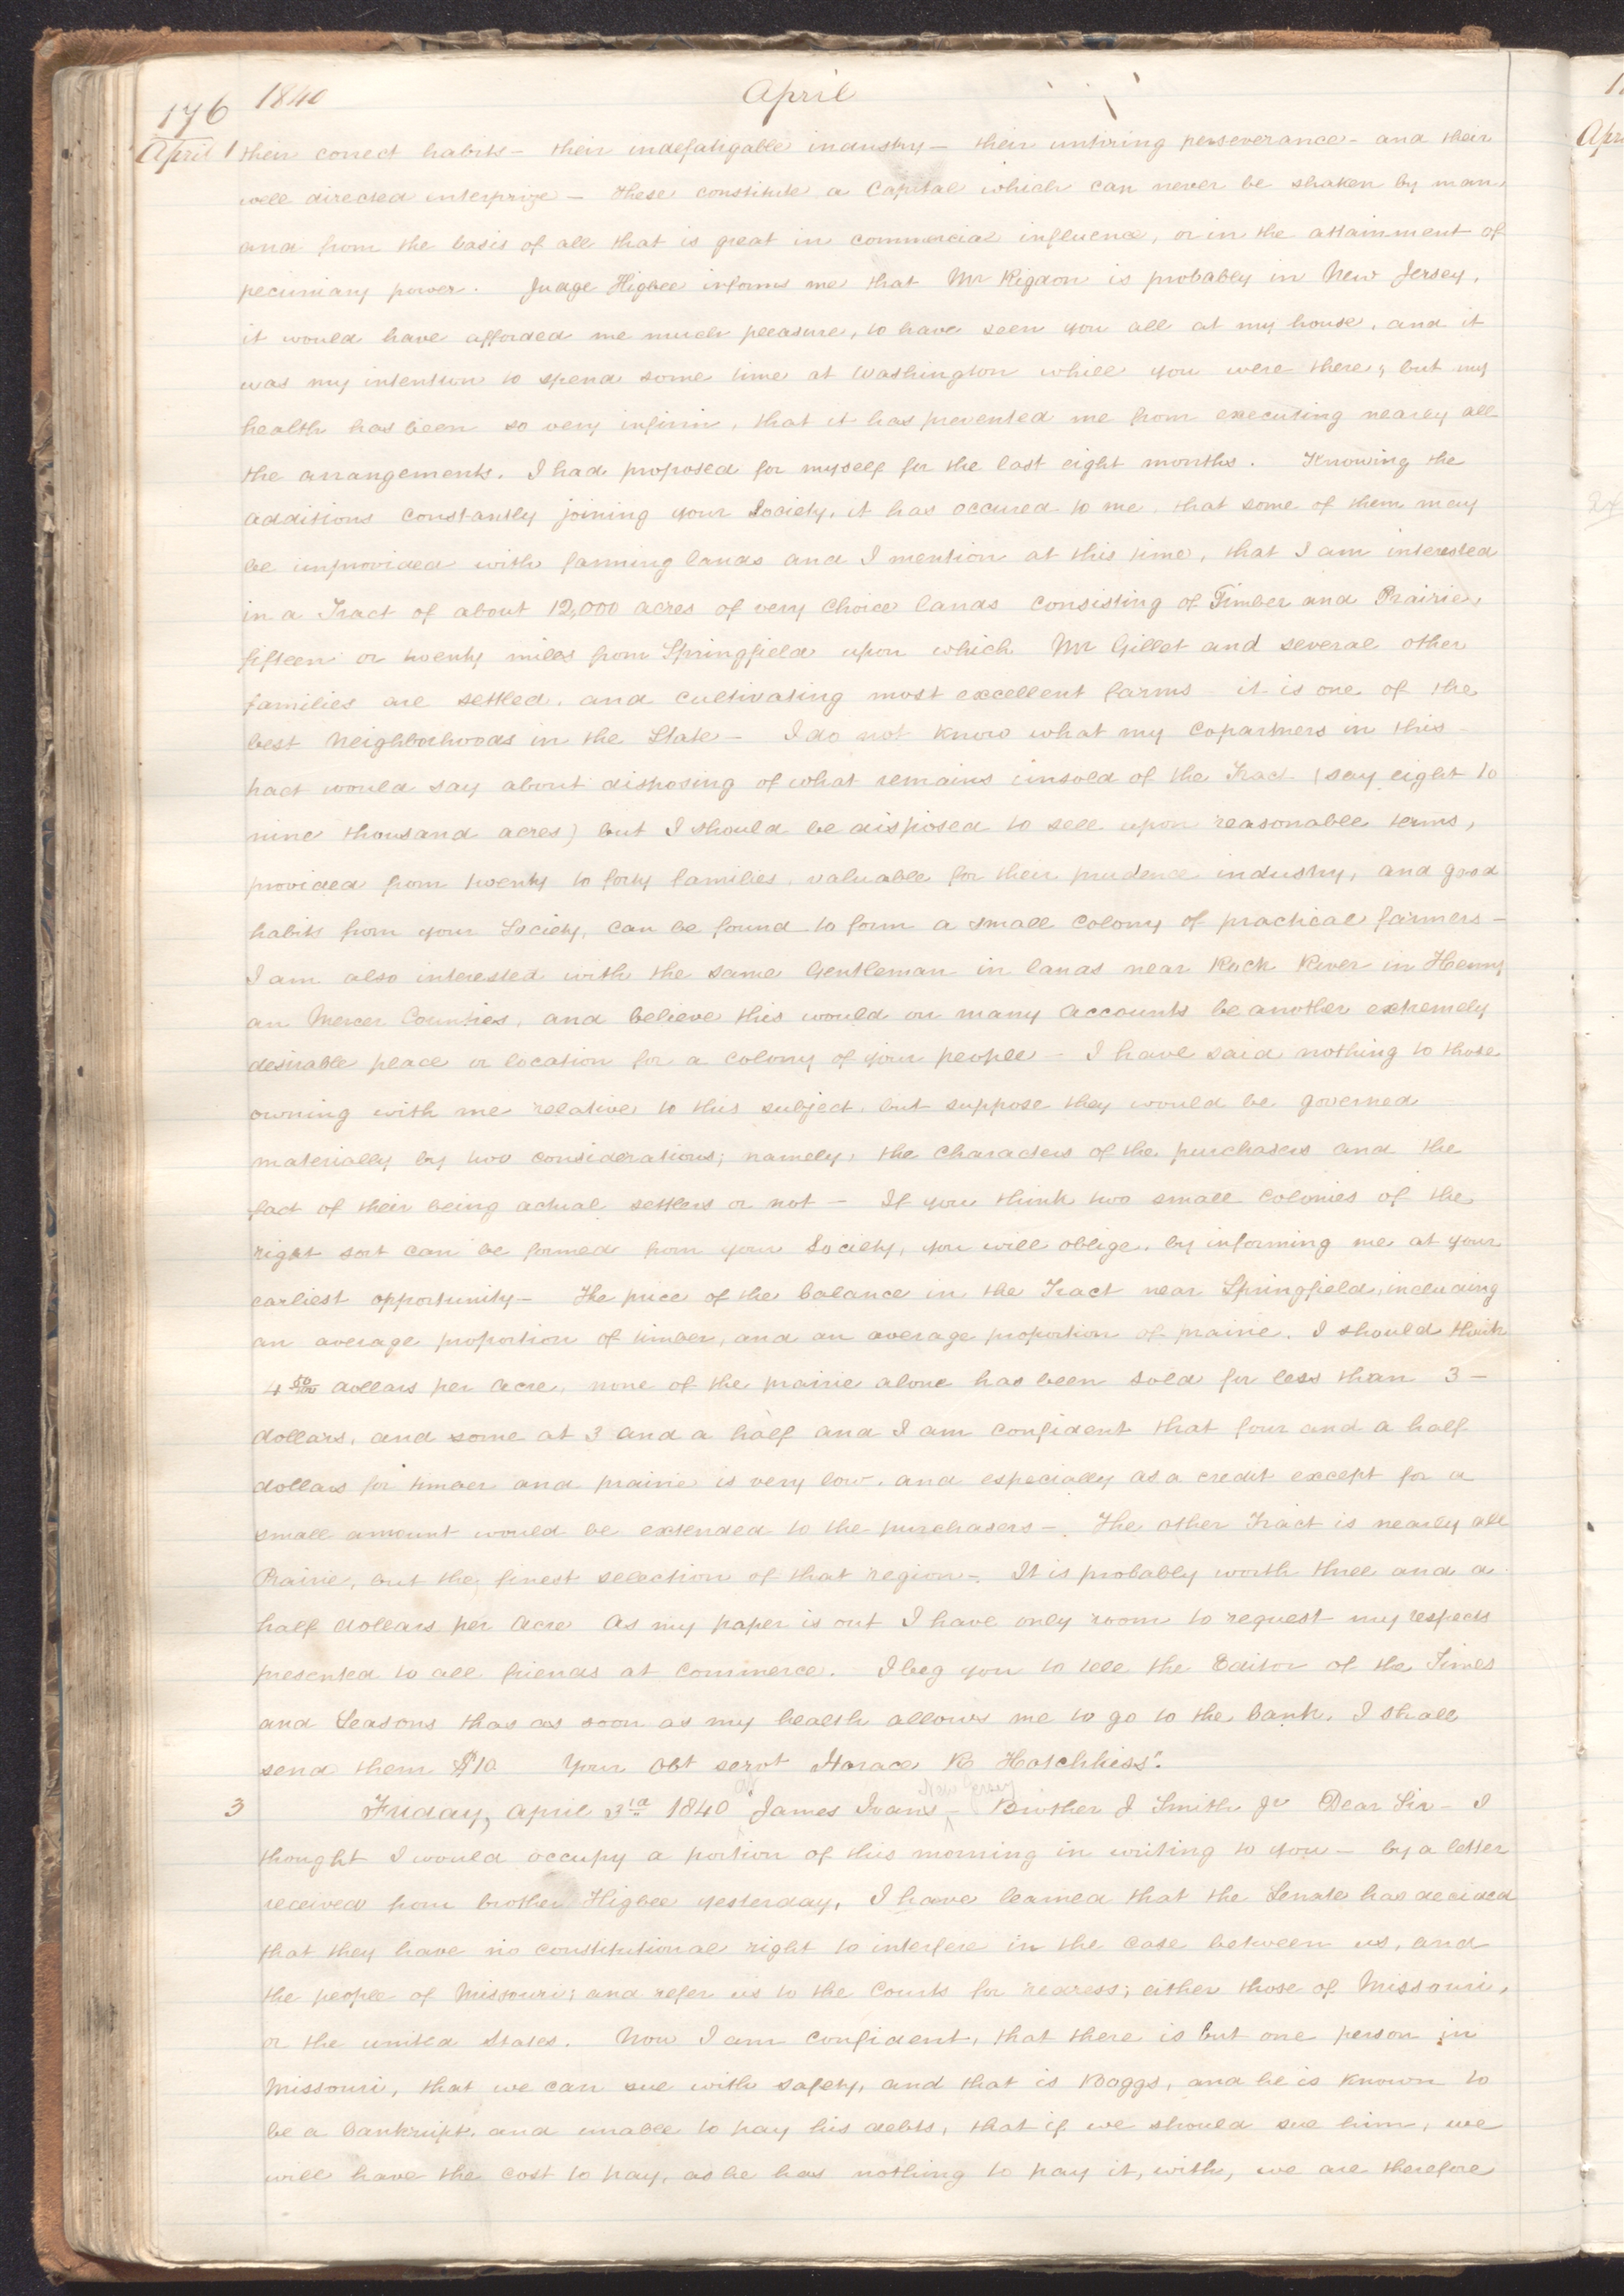 176 1840 April
April 1 their correct habits – their indefatigable industry – their untiring perseverance – and their
well directed interprize – these constitute a Capital which can never be shaken by man,
and from the basis of all that is great in commercial influence, or in the attainment of
pecuniary power. Judge Higbee informs me that Mr Rigdon is probably in New Jersey,
it would have afforded me much pleasure, to have seen you all at my house, and it
was my intention to spend some time at Washington while you were there, but my
health has been so very infirm, that it has prevented me from executing nearly all
the arrangements. I had proposed for myself for the last eight months. Knowing the
additions constantly joining your Society, it has occured to me, that some of them may
be unprovided with farming lands and I mention at this time, that I am interested
in a Tract of about 12,000 acres of very Choice lands Consisting of Timber and Prairie,
fifteen or twenty miles from Springfield upon which Mr Gillet and several other
families are settled, and cultivating most excellent farms – it is one of the
best Neighborhoods in the State – I do not know what my Copartners in this
tract would say about disposing of what remains unsold of the Tract (say eight to
nine thousand acres) but I should be disposed to sell upon reasonable terms,
provided from twenty to forty families, valuable for their prudence industry, and good
habits from your Society, can be found to form a small Colony of practical farmers –
I am also interested with the same Gentleman in lands near Rock River in Henry
an Mercer Counties, and believe this would on many accounts be another extremely
desirable place or location for a colony of your people – I have said nothing to those
owning with me relative to this subject, but suppose they would be governed
materially by two considerations; namely, the Characters of the purchasers and the
fact of their being actual settlers or not – If you think two small Colonies of the
right sort can be formed from your Society, you will oblige, by informing me at your
earliest opportunity – The price of the balance in the Tract near Springfield, including
an average proportion of timber, and an average proportion of prairie, I should think
4 50/100 dollars per acre, none of the prairie alone has been sold for less than 3 –
dollars, and some at 3 and a half and I am confident that four and a half
dollars for timber and prairie is very low, and especially as a credit except for a
small amount would be extended to the purchasers – The other Tract is nearly all
Prairie, but the finest selection of that region –. It is probably worth three and a
half dollars per Acre As my paper is out I have only room to request my respects
presented to all friends at Commerce. I beg you to tell the Editor of the Times
and Seasons that as soon as my health allows me to go to the Bank, I shall
send them $10 Your Obt servt Horace R Hotchkiss".
of New Jersey
3 Friday, April 3rd 1840 James Ivans – Brother J Smith Jr Dear Sir – I
thought I would occupy a portion of this morning in writing to you – by a letter
received from brother Higbee yesterday, I have learned that the Senate has decided
that they have no constitutional right to interfere in the case between us, and
the people of Missouri; and refer us to the Courts for redress; either those of Missouri,
or the united States. Now I am confident, that there is but one person in
Missouri, that we can sue with safety, and that is Boggs, and he is known to
be a bankrupt, and unable to pay his debts, that if we should sue him, we
will have the cost to pay, as he has nothing to pay it, with, we are therefore